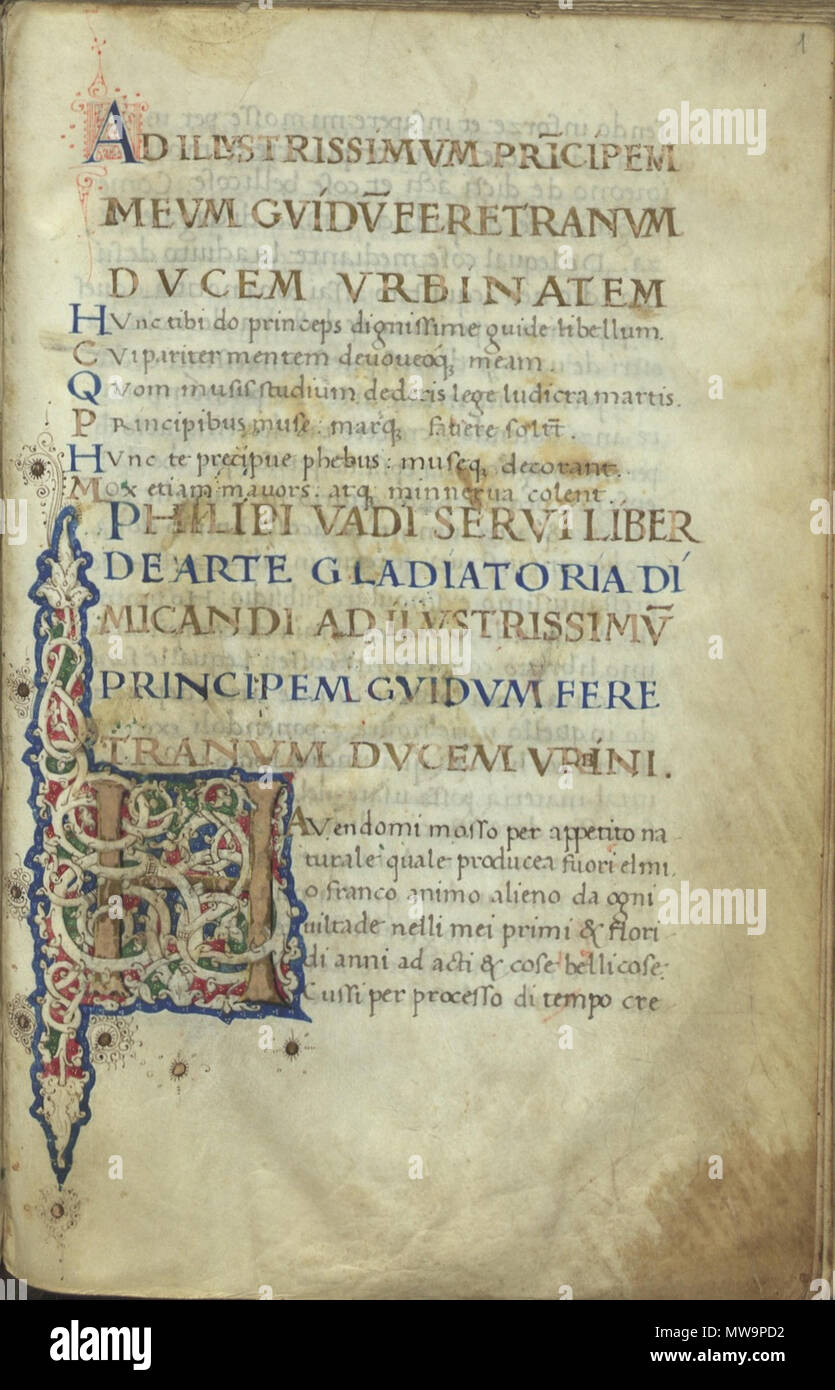 1
AD ILLVSTRISSIMVM PRĪCIPEM
MEVM GVIDŪ FERETRANVM
DVCEM VRBINATEM
HVnc tibi do princeps dignissime guide libellum.
CVi pariter mentem deuoueoq; meam.
QVom musis studium dederis lege ludicra martis.
PRincipibus muse: marq; fauere solūt.
HVnc te precipue phebus: museq; decorant.
MOx etiam mauors: atq; minnerua colent.
PHILIPI VADI SERVI LIBER
DE ARTE GLADIATORIA DI
MICANDI AD ILVSTRISSIMŪ
PRINCIPEM GVIDVM FERE
TRANVM DVCEM VRBINI.
HAVendomi mosso per appetito na
turale quale producea fuori el mi
o franco animo alieno da ogni
uiltade nelli mei primi & flori
di anni ad acti & cose bellicose:
Cussi per processo di tempo cre
alamy
a
alamy
Image ID: MW9PD2
www.alamy.com